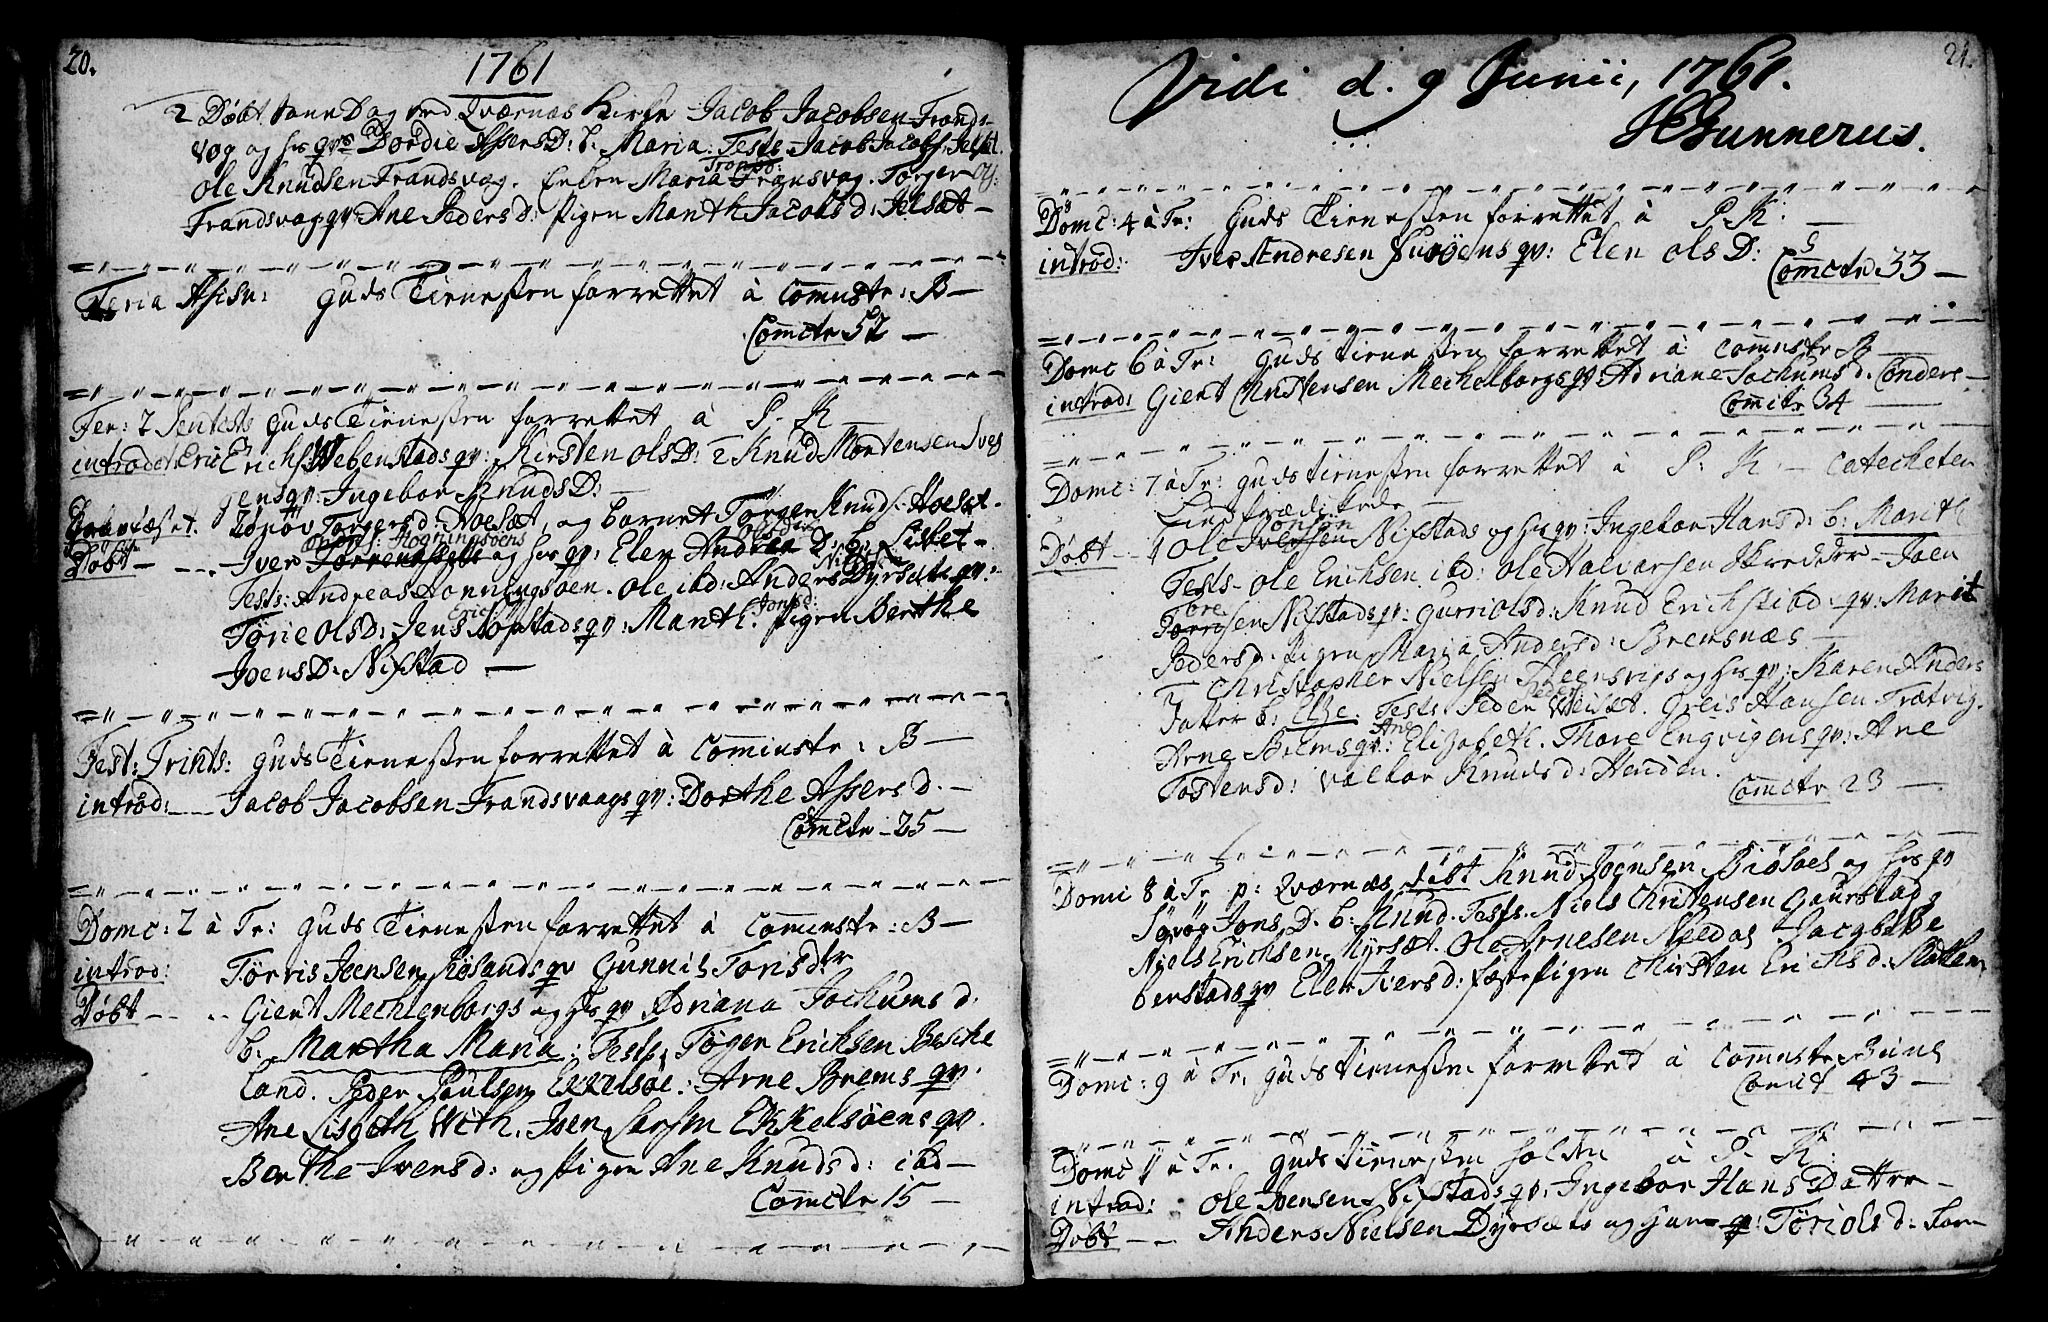 20.
1761
2 Døbt samme Dag ved Qværnæs Kirke Jacob Jacobsen Frands
vog og hs qvs Dordie AssersD: b. Maria. Tests Jacob Jacobs: Jelset.
Ole Knudsen Frandsvag. Enken Maria Fransvag. Torger
Frandsvags qv: Ane Peders d: pigen Marith Jacobs d: Jelsæt —
Feria Ascsn: Guds Tienesten forrettet à Commstr: B —
Comctr 52 —
Fer: 2 Pentcsts Guds Tienesten forrettet à P. K —
introd: Eric Erichs: Webenstads qv: Kirsten olsD: 2 Knud Mortensen Sves
gens qv: Ingebor KnudsD: —
Torgersd: Hoesæt, og barnet Torger Knuds: Hoesæt.
Døbt — Iver og hs qv: Elen D: b: Lisbet —
Tests: Andreas Honningsøen. Ole ibd: Anders Dyrsæts qv:
Törie OlsD: Jens qv: Marith. Jonsd: pigen Berthe
JoensD: Nifstad —
Fest: Trints: Guds Tienesten forrettet à Cominstr: B —
introd: — Jacob Jacobsen Frandsvaags qv: Dorthe Assers d. —
Comctr — 25 —
Domc: 2 à Tr: Guds Tienesten forrettet à Commstr: B —
introd: Tørris Joensen Røsands qv Gunnil Torisdtr
Døbt — Gient Mechlenborgs og hs qv Adriana Jochums d:
b: Martha Maria: Tests: Tøger Erichsen Besche
land. Peder Poulsen Ekkelsøe: Arne Brems qv:
Ane Lisbeth With. Joen Larsen Ekkelsøens qv.
Berthe Ivers d: og pigen Ane Knuds d: ibd —
Commctr 15 —
21.
Vidi d. 9 Junii, 1761.
JEGunnerus.
Domc: 4 à Tr: Guds Tienesten forrettet à P. K: —
introd: Iver Andresen qv: Elen ols D:
Commctr 33 —
Domc 6 à Tr: Guds Tienesten forrettet à Commstr B —
introd: Gient Christensen Mechelborgs qv: Adriane Jochums d. Conders —
Commctr 34 —
Domc: 7 à Tr: Guds Tienesten forrettet à P: K — Catecheten
Lind prædikede —
Døbt — 1 Ole Jonson Nifstads og hs qv: Ingebor Hans d: b: Marith
Tests — Ole Erichsen ibd: Ole Halvarsen Skredder — Joen
Toresen Nifstads qv: Gurri ols d: Knud Erichs ibd: qv: Marit
Peders d: pigen Maria Anders d: Bremsnæs —
2 Christopher Nielsen Steensvigs og hs qv: Karen Anders
Datter b: Elze: Tests Peder Weisæt. Greis Hansen Trætvig.
Arne Brems qv: Ane Elizabeth. Thore Engvigens qv: Ane
Tostensd: Valbor Knuds d: Henden.
Commctr 23 —
Domc 8 à Tr p: Qværnæs døbt Knud Joensen Biösaes og hs qv
Sÿvøg Jons D. b: Knud. Tests. Niels Christensen Gaurstad
Niels Erichsen Myrsæt. Ole Arnesen Jacob
benstads qv Elen Ivers d: fæste pigen Chirsten Erichs d.
Domc: 9 à Tr. Guds Tienesten forrettet à Commstr Beins
Comct 43 —
Domc 11 à Tr. Guds Tienesten holden à P. K:
introd: Ole Joensen Nifstads qv: Ingebor Hans Datter —
Døbt — Anders Nielsen Dyrsæts og hans qv: Töri ols d: